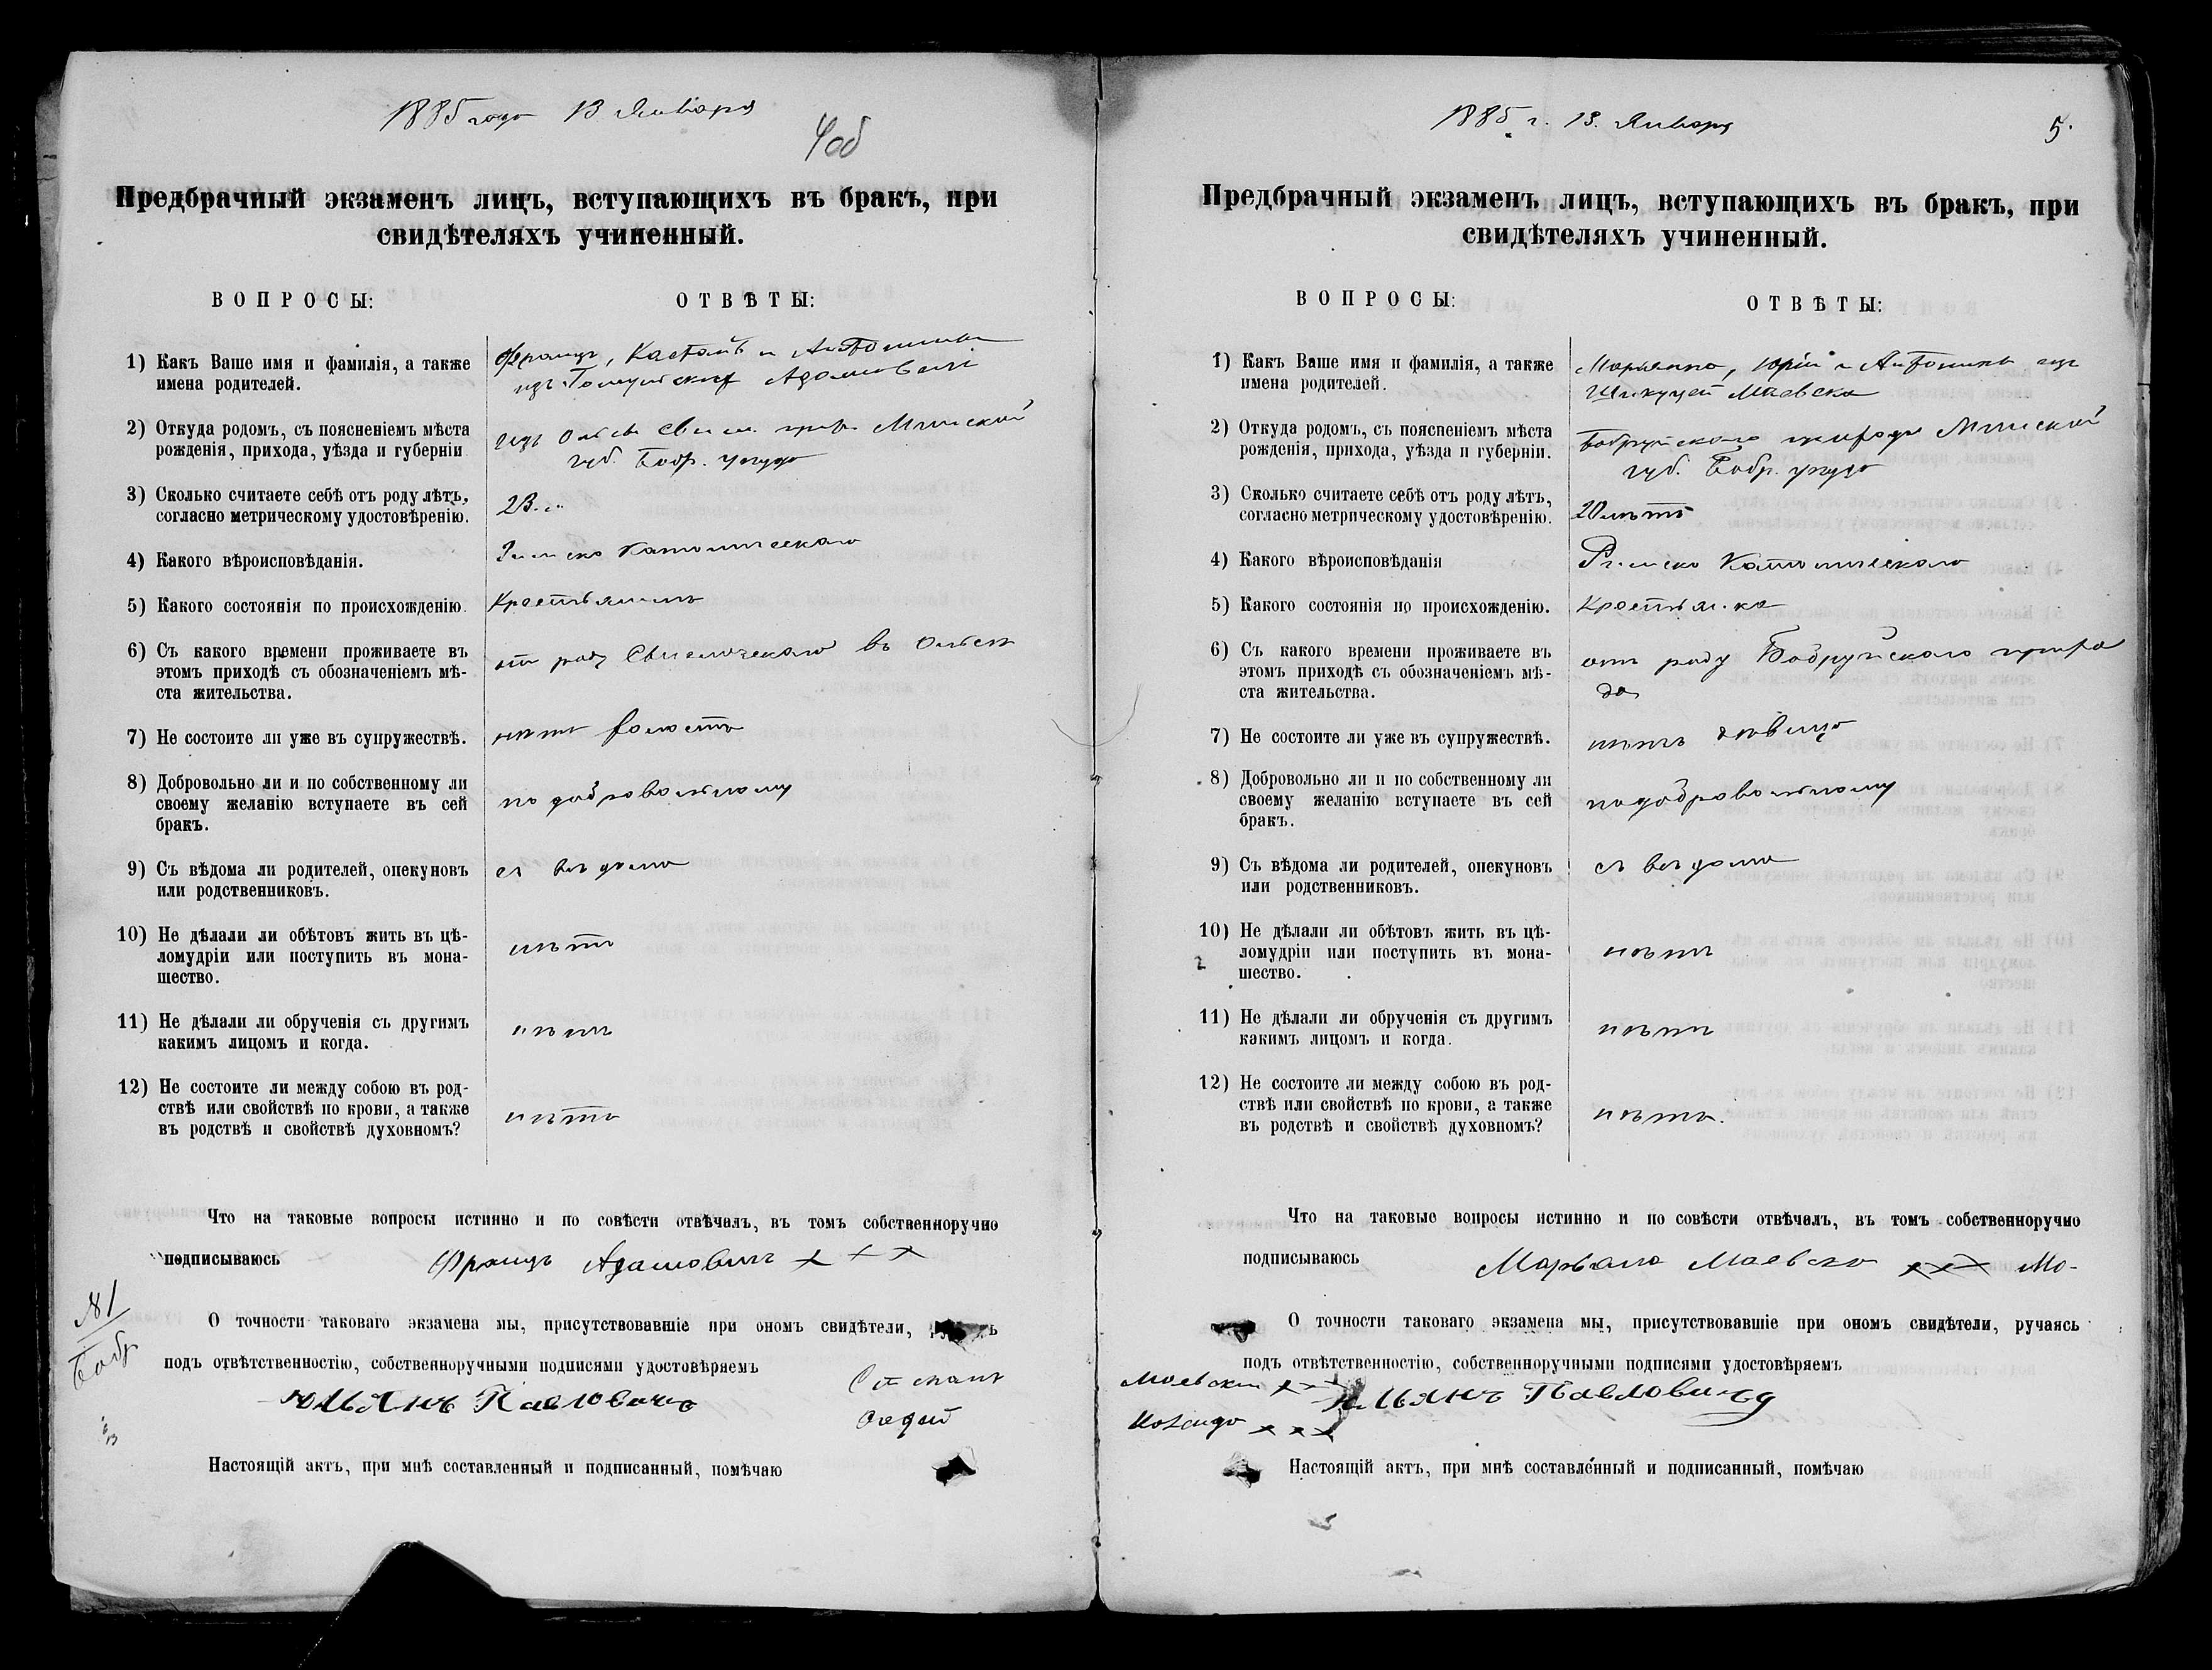 1885 года 13 Января
4об
Предбрачный экзаменъ лицъ, вступающихъ въ бракъ, при
свидѣтеляхъ учиненный.
ВОПРОСЫ:
ОТВѢТЫ:
1) Какъ Ваше имя и фамилія, а также
имена родителей.
Францъ, и Антонины
Адамович
2) Откуда родомъ, съ поясненіемъ мѣста
рожденія, прихода, уѣзда и губерніи
Минской
губ. Бобр. уезда
3) Сколько считаете себѣ отъ роду лѣтъ,
согласно метрическому удостовѣренію.
23
4) Какого вѣроисповѣданія.
Римско Католическаго
5) Какого состоянія по происхожденію.
Крестьянинъ
6) Съ какого времени проживаете въ
этомъ приходѣ съ обозначеніемъ мѣ-
ста жительства.
от роду Свислочскаго въ
7) Не состоите ли уже въ супружествѣ.
нѣтъ холостъ
8) Добровольно ли и по собственному ли
своему желанію вступаете въ сей
бракъ.
по добровольному
9) Съ вѣдома ли родителей, опекуновъ
или родственниковъ.
съ ведома
10) Не дѣлали ли обѣтовъ жить въ цѣ-
ломудріи или поступить въ мона-
шество.
нѣтъ
11) Не дѣлали ли обрученія съ другимъ
какимъ лицомъ и когда.
нѣтъ
12) Не состоите ли между собою въ род-
ствѣ или свойствѣ по крови, а также
въ родствѣ и свойствѣ духовномъ?
нѣтъ
Что на таковые вопросы истинно и по совѣсти отвѣчалъ, въ томъ собственноручно
подписываюсь Францъ Адамовичъ + + +
№1
Бобр
О точности таковаго экзамена мы, присутствовавшіе при ономъ свидѣтели,
подъ отвѣтственностію, собственноручными подписями удостовѣряемъ
Юльянъ Павловичъ
Настоящій актъ, при мнѣ составленный и подписанный, помѣчаю
1885 г. 13. Января
5.
Предбрачный экзаменъ лицъ, вступающихъ въ бракъ, при
свидѣтеляхъ учиненный.
ВОПРОСЫ:
ОТВѢТЫ:
1) Какъ Ваше имя и фамилія, а также
имена родителей.
Марьянна, Юрій и Антонина изъ
Маевска
2) Откуда родомъ, съ поясненіемъ мѣста
рожденія, прихода, уѣзда и губерніи.
Бобруйскаго прихода Минской
губ. Бобр. уезда
3) Сколько считаете себѣ отъ роду лѣтъ,
согласно метрическому удостовѣренію.
20 лѣтъ
4) Какого вѣроисповѣданія
Римско Католическаго
5) Какого состоянія по происхожденію.
Крестьянка
6) Съ какого времени проживаете въ
этомъ приходѣ съ обозначеніемъ мѣ-
ста жительства.
отъ роду Бобруйскаго прихо
да
7) Не состоите ли уже въ супружествѣ.
нѣтъ дѣвица
8) Добровольно ли и по собственному ли
своему желанію вступаете въ сей
бракъ.
подобровольному
9) Съ вѣдома ли родителей, опекуновъ
или родственниковъ.
съ ведома
10) Не дѣлали ли обѣтовъ жить въ цѣ-
ломудріи или поступить въ мона-
шество.
нѣтъ
11) Не дѣлали ли обрученія съ другимъ
какимъ лицомъ и когда.
нѣтъ
12) Не состоите ли между собою въ род-
ствѣ или свойствѣ по крови, а также
въ родствѣ и свойствѣ духовномъ?
нѣтъ.
Что на таковые вопросы истинно и по совѣсти отвѣчалъ, въ томъ собственноручно
подписываюсь Марьяна Маевска +++
О точности таковаго экзамена мы, присутствовавшіе при ономъ свидѣтели, ручаясь
подъ отвѣтственностію, собственноручными подписями удостовѣряемъ
Маевски
Юльянъ Павловичъ
+++
Настоящій актъ, при мнѣ составленный и подписанный, помѣчаю